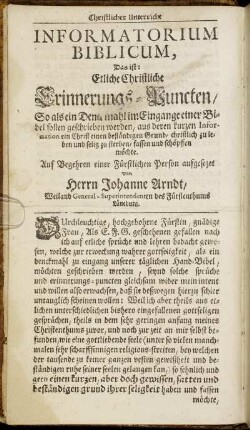 Christlicher Unterricht
INFORMATORIUM
BIBLICUM,
Das ist:
Etliche Christliche
Erinnerungs-Puncten/
So als ein Denckmahl im Eingange einer Bi-
bel sollen geschrieben werden, aus deren kurzen Infor-
mation ein Christ einen beständigen Grund, christlich zu le-
ben und selig zu sterben/ fassen und schöpffen
möchte.
Auf Begehren einer Fürstlichen Person aufgesetzet
von
Herrn Johanne Arndt,
Weiland General-Superintendenten des Fürstenthums
Lüneburg.
Durchleuchtige, hochgebohrne Fürstin, gnädige
Frau, Als E. F. G. geschehenen gefallen nach
ich auf etliche sprüche und lehren bedacht gewe-
sen, welche zur erweckung wahrer gottseligkeit, als ein
denckmahl zu eingang unserer täglichen Hand-Bibel,
möchten geschrieben werden, seynd solche sprüche
und erinnerungs-puncten gleichsam wider mein intent
und willen also erwachsen, daß sie deßwegen hierzu schier
untauglich scheinen wollen: Weil ich aber theils aus et-
lichen unterschiedlichen hiebevor eingefallenen gottseligen
gesprächen, theils in dem sehr geringen anfang meines
Christenthums zuvor, und noch zur zeit an mir selbst be-
funden, wie eine gottliebende seele (unter so vielen manch-
malen sehr scharffsinnigen religions-streiten, bey welchen
der tausende zu keiner ganzen vesten gewißheit und be-
ständigen ruhe seiner seelen gelangen kan,) so sehnlich und
gern einen kurzen, aber doch gewissen, satten und
beständigen grund ihrer seligkeit haben und fassen
möchte,